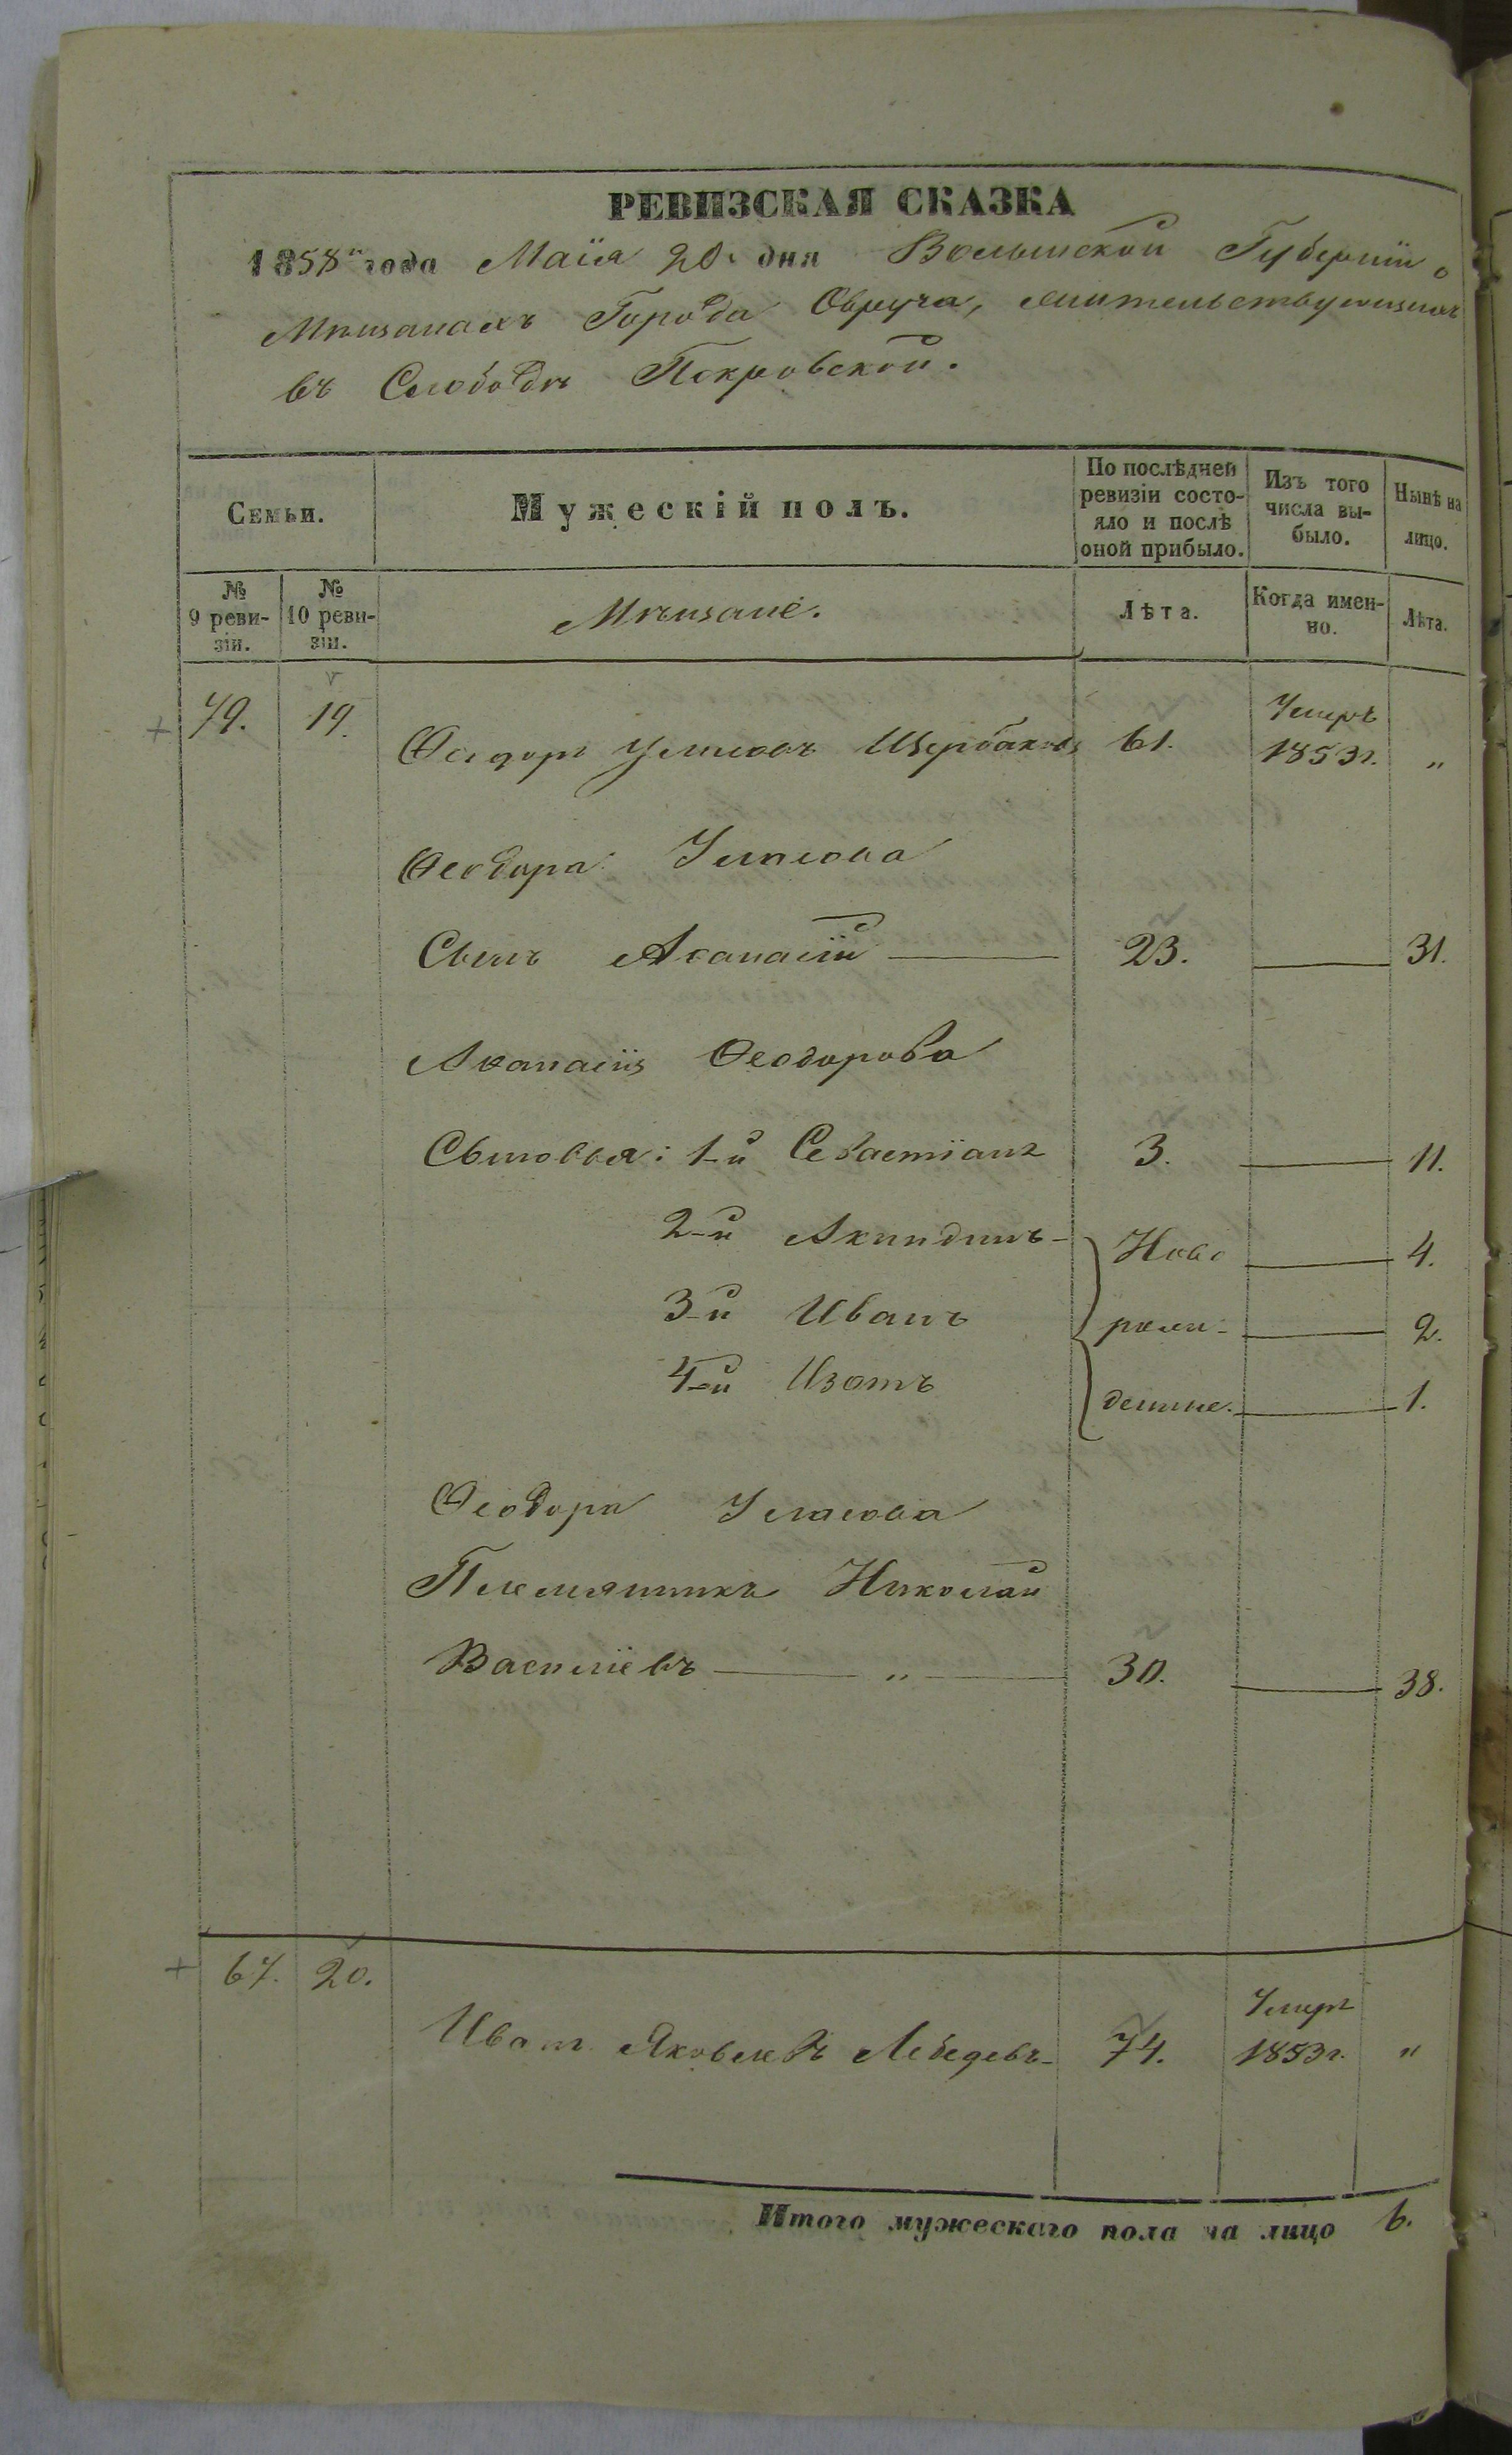 РЕВИЗСКАЯ СКАЗКА
1858 года Маія 20 дня Волынской Губерніи о
Мѣщанахъ Города Овруча, жительствующихъ
въ Слободѣ Покровской.
Семьи.
Мужескій полъ.
По послѣдней
ревизіи состо-
яло и послѣ
оной прибыло.
Изъ того
числа вы-
было.
Нынѣ на
лицо.
№
9 реви-
зіи.
№
10 реви-
зіи.
Мѣщане.
Лѣта.
Когда имен-
но.
Лѣта.
79. 19. Ѳеодоръ Щербаковъ 61. Умеръ
1853 г. „
Ѳеодора
Сынъ Аѳанасій 23. 31.
Аѳанасія Ѳеодорова
Сыновья: 1-й Севастіанъ 3. 11.
2-й Акиндинъ Ново 4.
3-й Иванъ рож- 2.
4-й Изотъ денные. 1.
Ѳеодора
Племянникъ Николай
Василіевъ „ 30. 38.
67. 20. Иванъ Яковлевъ Лебедевъ 74. Умеръ
1853 г. „
Итого мужескаго пола на лицо 6.